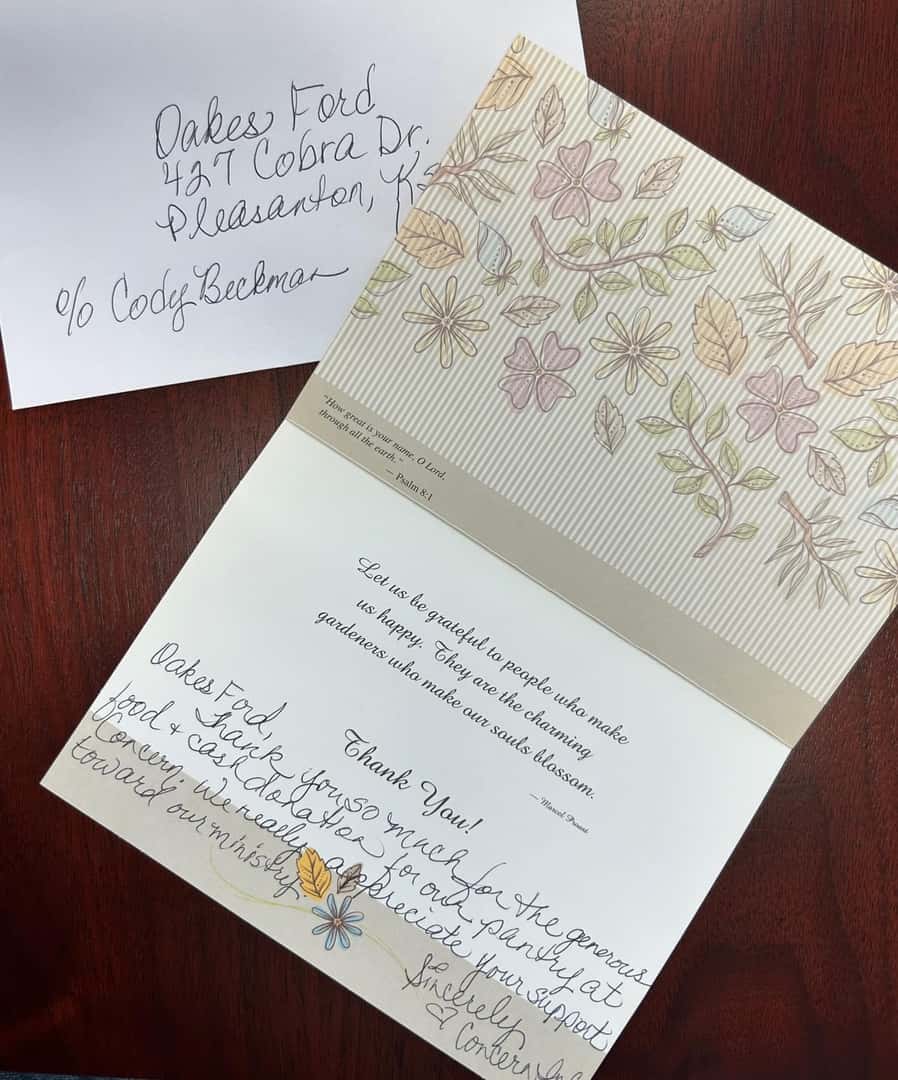 Oakes Ford
427 Cobra Dr.
Pleasanton, Ks
c/o Cody Beckman
"How great is your name, O Lord,
through all the earth."
— Psalm 8:1
Let us be grateful to people who make
us happy. They are the charming
gardeners who make our souls blossom.
— Marcel Proust
Thank You!
Oakes Ford,
Thank you so much for the generous
food & cash donation for our pantry at
Concern. We really appreciate your support
toward our ministry.
Sincerely
Concern